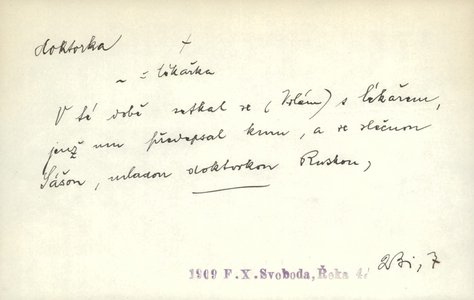 doktorka +
~ = lékařka
V té době setkal se (Volám) s lékařem,
jenž mu předepsal kmu, a se slečnou
Sášou, mladou doktorkou Ruskou,
1909 F.X.Svoboda, Řeka 4/
2Bi, 7